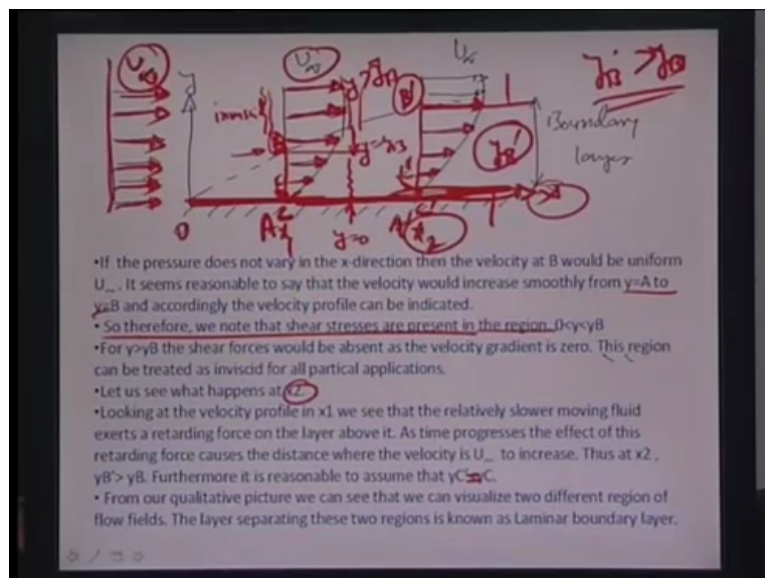 U∞
y
U∞
y>yB
U∞
yB' > yB
B'
Boundary
layer
y=yB
yB'
0
A
x1
y=0
A'
x2
•If the pressure does not vary in the x-direction then the velocity at B would be uniform
U_ . It seems reasonable to say that the velocity would increase smoothly from y=A to
y=B and accordingly the velocity profile can be indicated.
• So therefore, we note that shear stresses are present in the region. 0<y<yB
•For y>yB the shear forces would be absent as the velocity gradient is zero. This region
can be treated as inviscid for all partical applications.
•Let us see what happens at x2.
•Looking at the velocity profile in x1 we see that the relatively slower moving fluid
exerts a retarding force on the layer above it. As time progresses the effect of this
retarding force causes the distance where the velocity is U_ to increase. Thus at x2 ,
yB'> yB. Furthermore it is reasonable to assume that yC'=yC.
• From our qualitative picture we can see that we can visualize two different region of
flow fields. The layer separating these two regions is known as Laminar boundary layer.